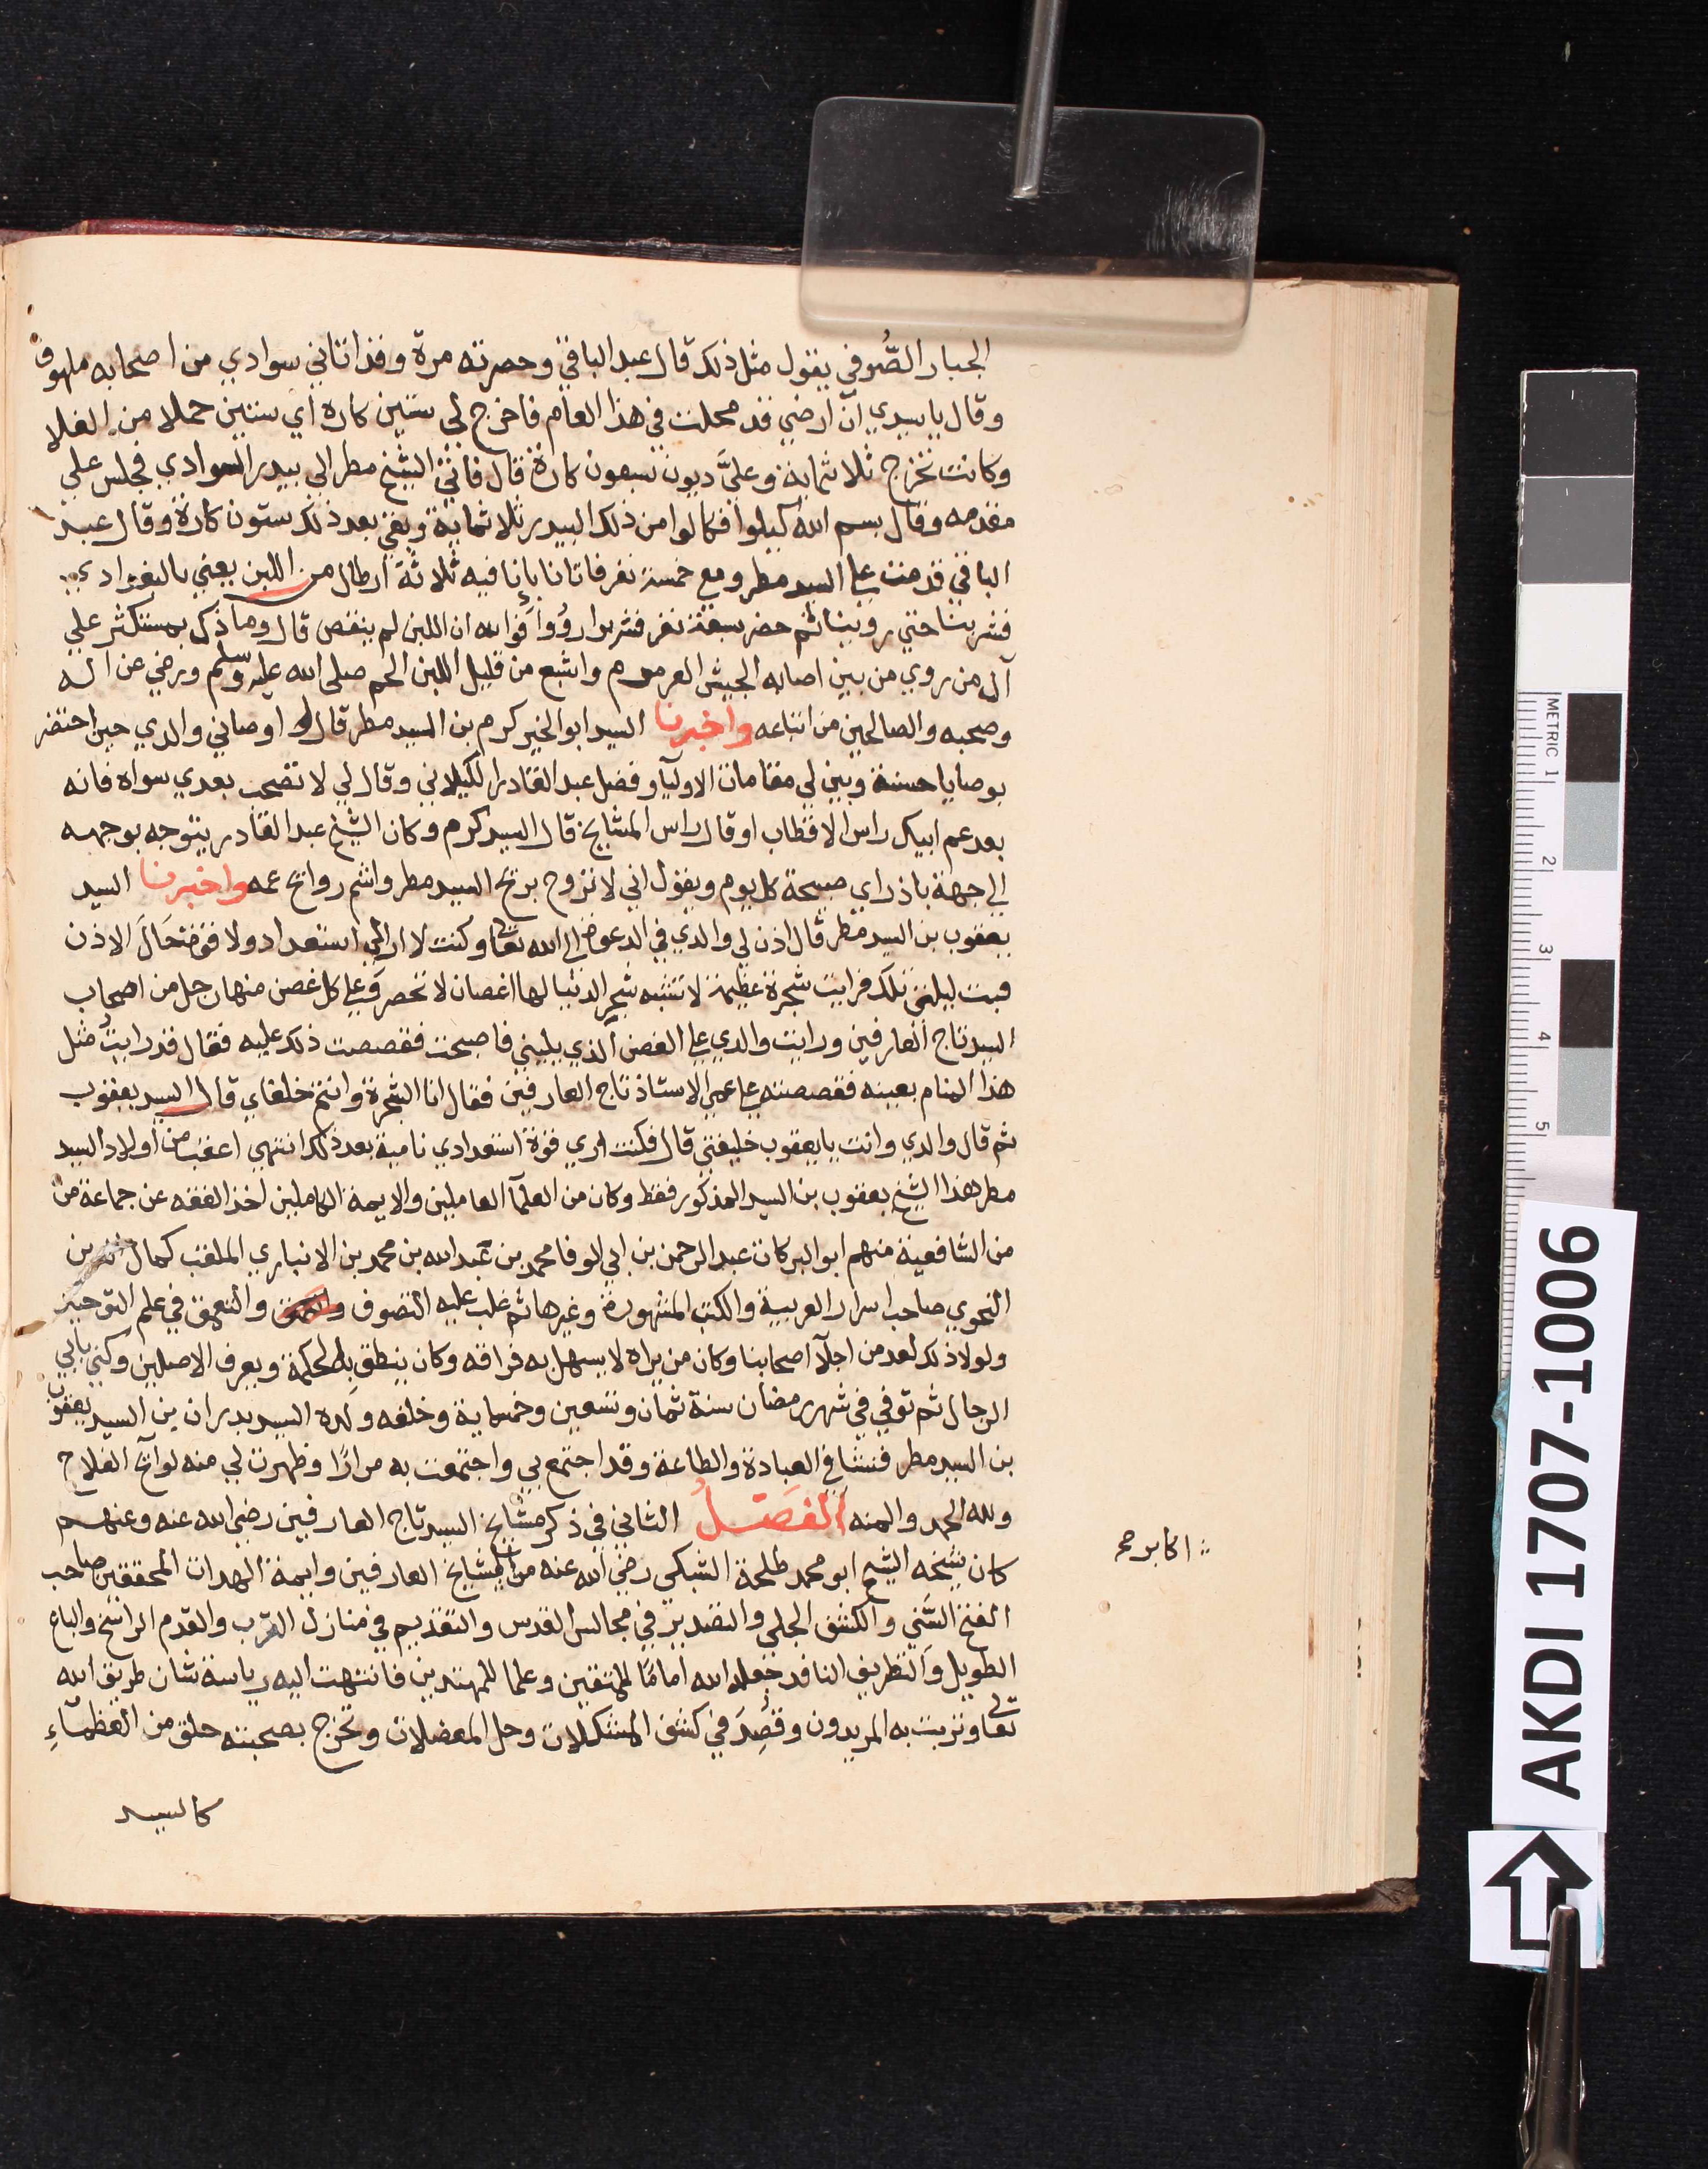 الجبار الصُّوفي يقول مثل ذلك قال عبد الباقي وحصرته مرة وقد اتاني سوادي من اصحابه ملهوف
وقال يا سيدي انّ ارضي قد محلت في هذا العام فاخرج لي ستين كاره اي ستين حملا من الغلا
وكانت تخرج ثلاثماية وعليَّ ديون تسعون كارة قال فاتي الشيخ مطر الي بيدر السوادي فجلس علي
مقدمه وقال بسم الله كيلوا فكالوا من ذلك البيدر ثلاثماية وبقي بعد ذلك ستون كارة وقال عبد
الباقي قدمت علي السيد مطر ومع خمسة نفر فاتانا بإنا فيه ثلاثة ارطال من اللبن يعني بالبغدادي
فشربنا حتي روينا ثم حضر سبعة نفر فشربوا رؤوا فوالله ان اللبن لم ينقص قال وما ذك بمستكثر علي
آل من روي من بين اصابه الجيش العرمرم واشبع من قليل اللبن الحم صلى الله عليه وسلم ورضي عن اله
وصحبه والصالحين من اتباعه واخبرنا السيد ابو الخير كرم بن السيد مطر قال اوصاني والدي حين احتضر
بوصايا حسنة وبين لي مقامات الاوليآ وفضل عبد القادر الكيلاني وقال لي لا تصحب بعدي سواه فانه
بعد عم ابيك راس الاقطاب او قال راس المشايخ قال السيد كرم وكان الشيخ عبد القادر يتوجه بوجهه
الي جهة باذراي صبيحة كل يوم ويقول اني لاتروح بريح السيد مطر واشم روايح عمه واخبرنا السيد
يعقوب بن السيد مطر قال اذن لي والدي في الدعوة الي الله تعالى وكنت لا ارالي استعداد ولا قوة حال الاذن
فبت ليلتي تلك فرايت شجرة عظيمة لا تشبه شجر الدنيا لها اغصان لا تحصر وعلي كل غصن منها رجل من اصحاب
السيد تاج العارفين ورايت والدي علي الغصن الذي يليني فاصبحت فقصصت ذلك عليه فقال قد رايت مثل
هذا المنام بعينه فقصصته علي عمي الاستاذ تاج العارفين فقال انا الشجرة وانتم خلفاي قال السيد يعقوب
ثم قال والدي وانت يا يعقوب خليفتي قال فكنت اري قوة استعدادي نامية بعد ذلك انتهي اعقب من اولاد السيد
مطر هذا الشيخ يعقوب بن السيد المذكور فقط وكان من العلمآ العاملين والايمة الكاملين اخذ الفقه عن جماعة من
من الشافعية منهم ابو البركات عبد الرحمن بن ابي الوفا محمد بن عبد الله بن محمد بن الانباري الملقب كمال بن
النحوي صاحب اسرار العربية والكتب المشهورة وغيرها ثم غلب عليه التصوف والتعمق في علم التوحيد
ولولا ذلك لعد من اجلآ اصحابنا وكان من يراه لا يسهل به فراقه وكان ينطق بالحكمة ويعرف الاصلين وكني بابي
الرجال ثم توفي في شهر رمضان سنة ثمان وتسعين وخمسماية وخلفه ولده السيد بدران بن السيد يعقوب
بن السيد مطر فنشا في العبادة والطاعة وقد اجتمع بي واجتمعت به مرارًا وظهرت لي منه لوايح الفلاح
ولله الحمد والمنه الفصل الثاني في ذكر مشايخ السيد تاج العارفين رضي الله عنه وعنهم
كان شيخه الشيخ ابو محمد طلحة الشنبكي رضي الله عنه من المشايخ العارفين وايمة الهداة المحققين صاحب
الفتح السَّني والكشف الجلي والتصدير في مجالس القدس والتقديم في منازل القرب والقدم الراسخ والباع
الطويل والتطريف النافد جعله الله امامًا للمتقين وعلما للمهتدين فانتهت اليه رياسة شان طريق الله
تعالى وتربت به المريدون وقُصِدَ في كشف المشكلات وحل المعضلات وتخرج بصحبته خلق من العظمآءِ
كالسيد
اكابر صح
AKDI 1707-1006
METRIC 1 2 3 4 5